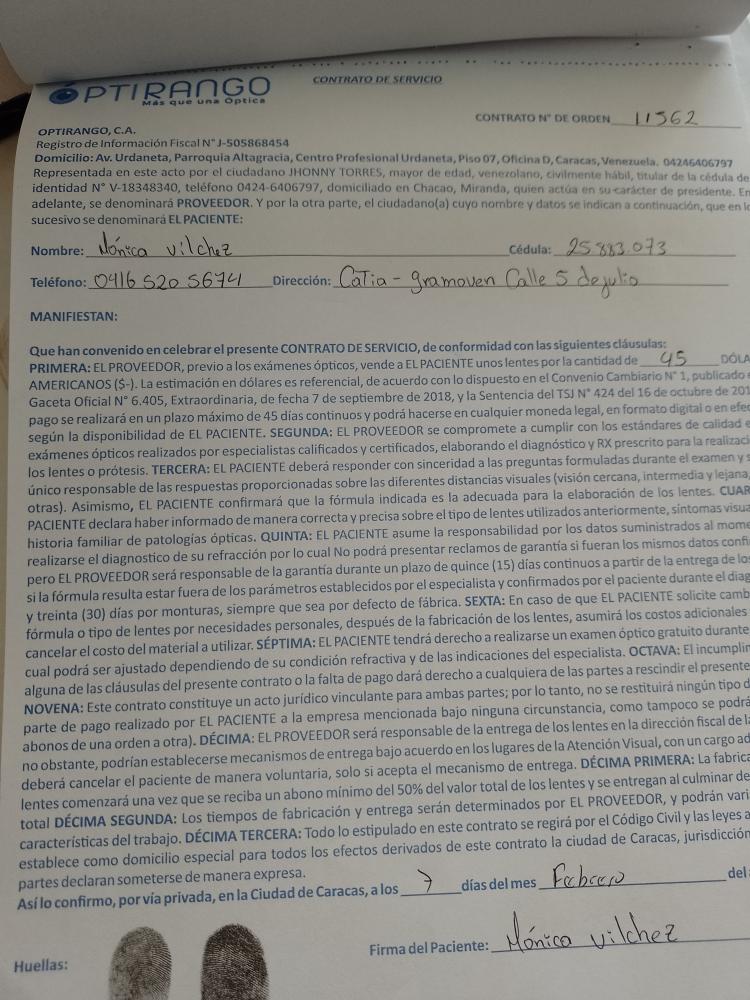 OPTIRANGO
Más que una Optica
CONTRATO DE SERVICIO
CONTRATO N° DE ORDEN 11562
OPTIRANGO, C.A.
Registro de Información Fiscal N° J-505868454
Domicilio: Av. Urdaneta, Parroquia Altagracia, Centro Profesional Urdaneta, Piso 07, Oficina D, Caracas, Venezuela. 04246406797
Representada en este acto por el ciudadano JHONNY TORRES, mayor de edad, venezolano, civilmente hábil, titular de la cédula de
identidad N° V-18348340, teléfono 0424-6406797, domiciliado en Chacao, Miranda, quien actúa en su carácter de presidente. En
adelante, se denominará PROVEEDOR. Y por la otra parte, el ciudadano(a) cuyo nombre y datos se indican a continuación, que en lo
sucesivo se denominará EL PACIENTE:
Nombre: Mónica Vilchez Cédula: 25.883.073
Teléfono: 0416 520 5674 Dirección: Catia - gramoven Calle 5 de julio
MANIFIESTAN:
Que han convenido en celebrar el presente CONTRATO DE SERVICIO, de conformidad con las siguientes cláusulas:
PRIMERA: EL PROVEEDOR, previo a los exámenes ópticos, vende a EL PACIENTE unos lentes por la cantidad de 45 DÓLA
AMERICANOS ($-). La estimación en dólares es referencial, de acuerdo con lo dispuesto en el Convenio Cambiario N° 1, publicado
Gaceta Oficial N° 6.405, Extraordinaria, de fecha 7 de septiembre de 2018, y la Sentencia del TSJ N° 424 del 16 de octubre de 201
pago se realizará en un plazo máximo de 45 días continuos y podrá hacerse en cualquier moneda legal, en formato digital o en efe
según la disponibilidad de EL PACIENTE. SEGUNDA: EL PROVEEDOR se compromete a cumplir con los estándares de calidad e
exámenes ópticos realizados por especialistas calificados y certificados, elaborando el diagnóstico y RX prescrito para la realizaci
los lentes o prótesis. TERCERA: EL PACIENTE deberá responder con sinceridad a las preguntas formuladas durante el examen y s
único responsable de las respuestas proporcionadas sobre las diferentes distancias visuales (visión cercana, intermedia y lejana,
otras). Asimismo, EL PACIENTE confirmará que la fórmula indicada es la adecuada para la elaboración de los lentes. CUAR
PACIENTE declara haber informado de manera correcta y precisa sobre el tipo de lentes utilizados anteriormente, síntomas visua
historia familiar de patologías ópticas. QUINTA: EL PACIENTE asume la responsabilidad por los datos suministrados al mome
realizarse el diagnostico de su refracción por lo cual No podrá presentar reclamos de garantía si fueran los mismos datos confi
pero EL PROVEEDOR será responsable de la garantía durante un plazo de quince (15) días continuos a partir de la entrega de los
si la fórmula resulta estar fuera de los parámetros establecidos por el especialista y confirmados por el paciente durante el diag
y treinta (30) días por monturas, siempre que sea por defecto de fábrica. SEXTA: En caso de que EL PACIENTE solicite camb
fórmula o tipo de lentes por necesidades personales, después de la fabricación de los lentes, asumirá los costos adicionales
cancelar el costo del material a utilizar. SÉPTIMA: EL PACIENTE tendrá derecho a realizarse un examen óptico gratuito durante
cual podrá ser ajustado dependiendo de su condición refractiva y de las indicaciones del especialista. OCTAVA: El incumplim
alguna de las cláusulas del presente contrato o la falta de pago dará derecho a cualquiera de las partes a rescindir el presente
NOVENA: Este contrato constituye un acto jurídico vinculante para ambas partes; por lo tanto, no se restituirá ningún tipo d
parte de pago realizado por EL PACIENTE a la empresa mencionada bajo ninguna circunstancia, como tampoco se podrá
abonos de una orden a otra). DÉCIMA: EL PROVEEDOR será responsable de la entrega de los lentes en la dirección fiscal de la
no obstante, podrían establecerse mecanismos de entrega bajo acuerdo en los lugares de la Atención Visual, con un cargo ad
deberá cancelar el paciente de manera voluntaria, solo si acepta el mecanismo de entrega. DÉCIMA PRIMERA: La fabrica
lentes comenzará una vez que se reciba un abono mínimo del 50% del valor total de los lentes y se entregan al culminar de
total DÉCIMA SEGUNDA: Los tiempos de fabricación y entrega serán determinados por EL PROVEEDOR, y podrán vari
características del trabajo. DÉCIMA TERCERA: Todo lo estipulado en este contrato se regirá por el Código Civil y las leyes a
establece como domicilio especial para todos los efectos derivados de este contrato la ciudad de Caracas, jurisdicción
partes declaran someterse de manera expresa.
Así lo confirmo, por vía privada, en la Ciudad de Caracas, a los 7 días del mes Febrero del
Huellas: Firma del Paciente: Mónica Vilchez